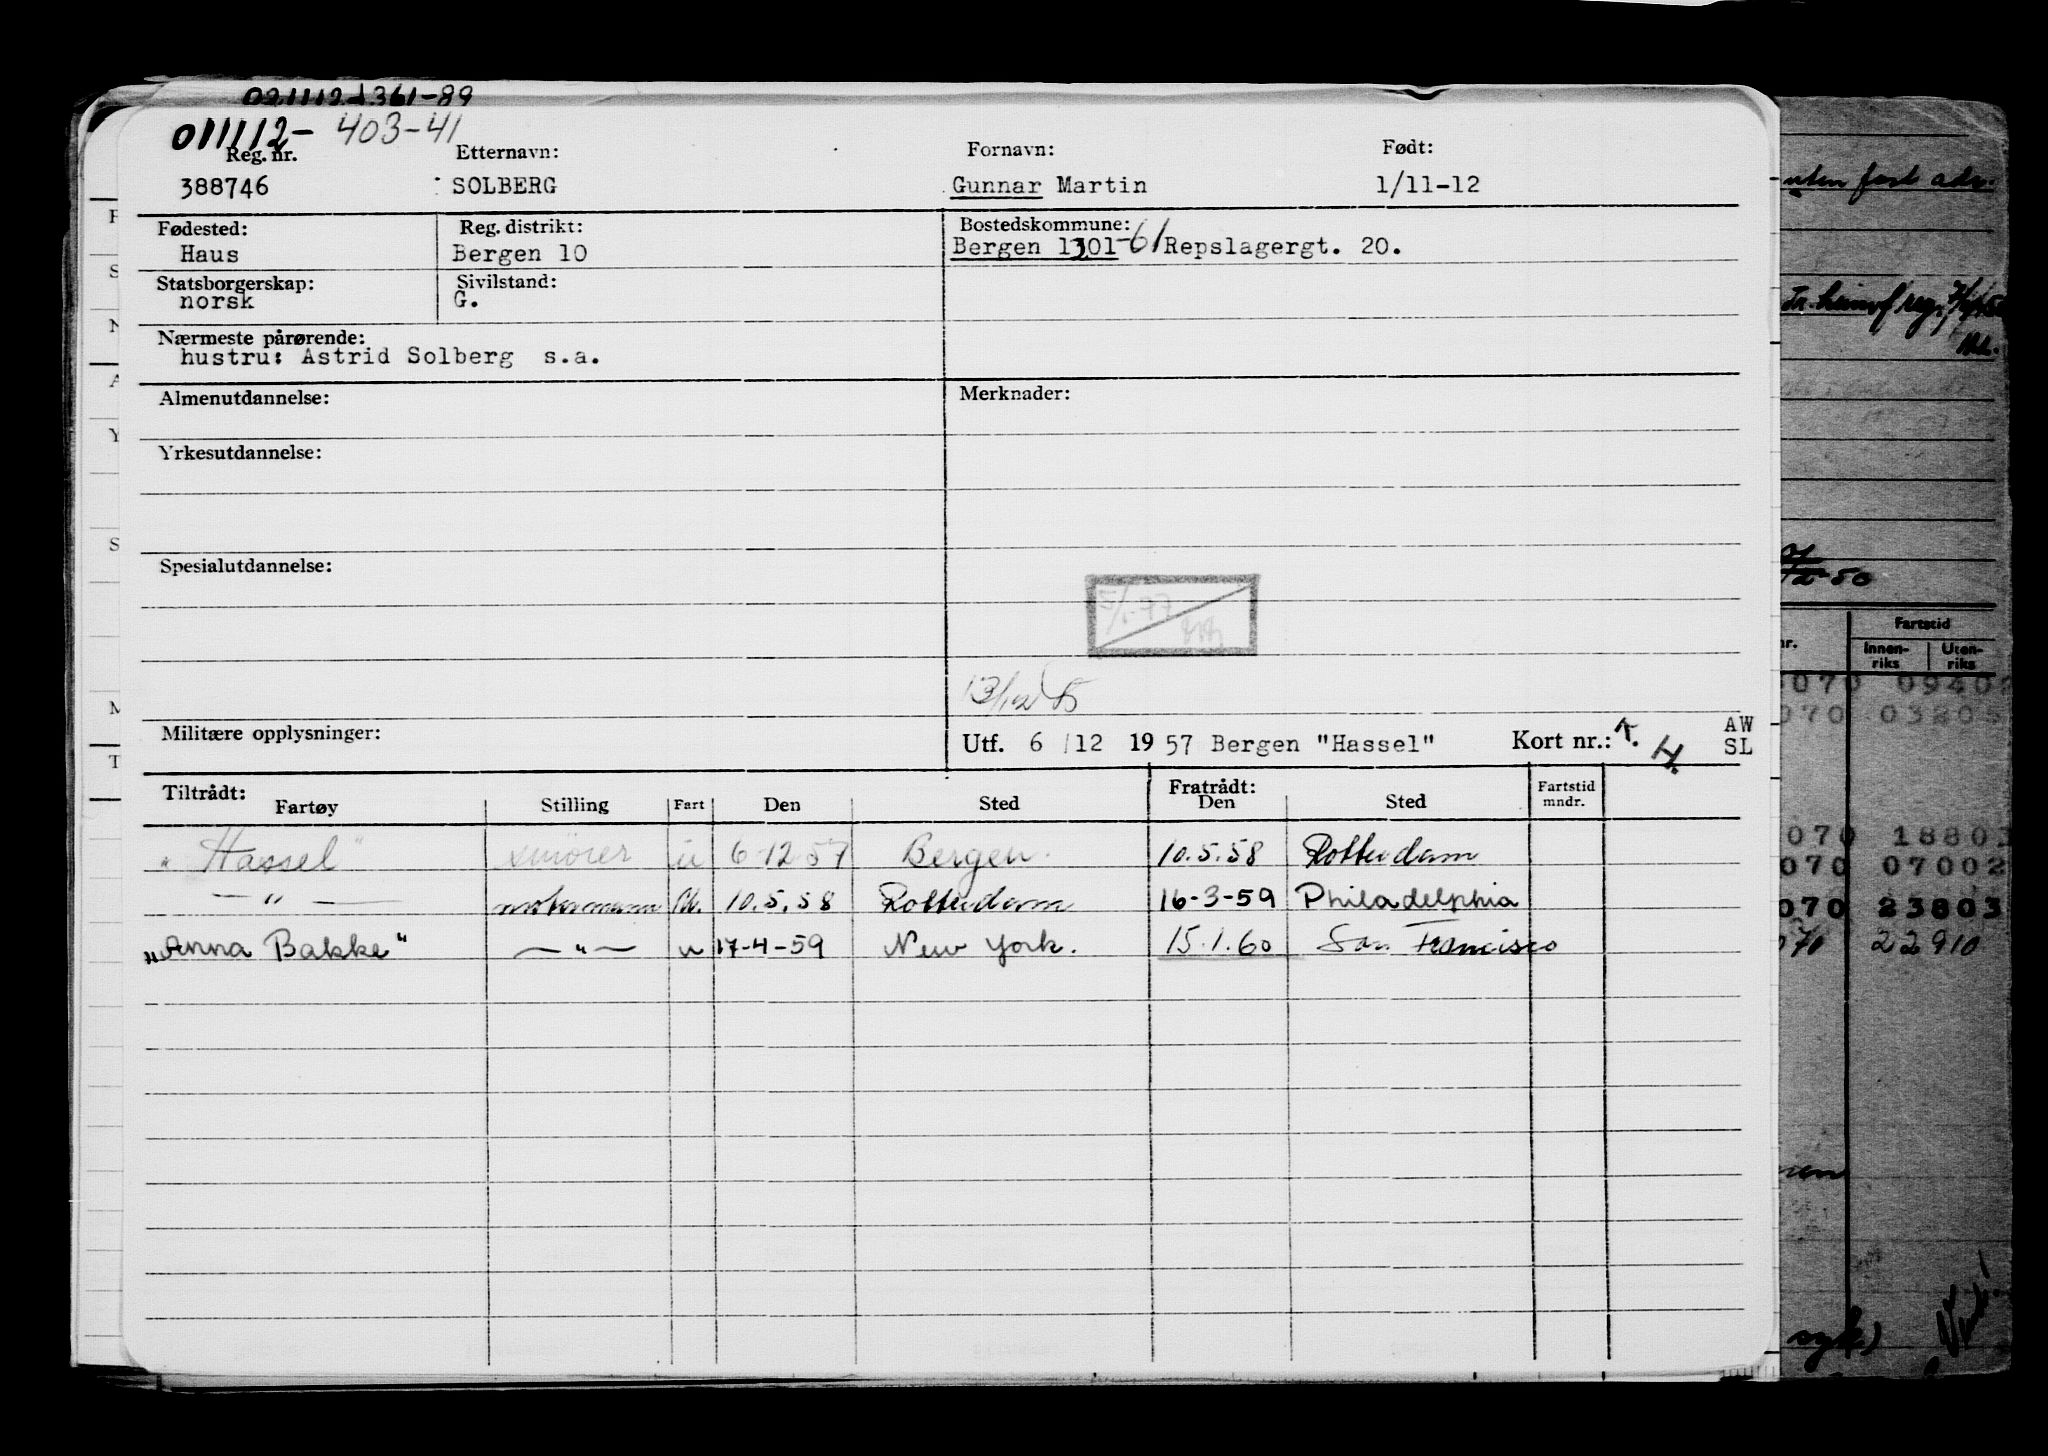 011112- 403-41
Reg. nr. Etternavn: Fornavn: Født:
388746 SOLBERG Gunnar Martin 1/11-12
Fødested: Reg. distrikt: Bostedskommune:
Haus Bergen 10 Bergen 1301-61 Repslagergt. 20.
Statsborgerskap: Sivilstand:
norsk G.
Nærmeste pårørende:
hustru: Astrid Solberg s.a.
Almenutdannelse: Merknader:
Yrkesutdannelse:
Spesialutdannelse:
Militære opplysninger: Utf. 6/12 1957 Bergen "Hassel" Kort nr.: T. H. AW SL
Tiltrådt: Fratrådt:
Fartøy Stilling Fart Den Sted Den Sted Fartstid mndr.
"Hassel" smører u 6-12-57 Bergen. 10.5.58 Rotterdam
— " — motormann 10.5.58 Rotterdam 16-3-59 Philadelphia
"Anna Bakke" — " — u 17-4-59 New York. 15.1.60 San Francisco
uten fast adr.
Fartstid
Innen-riks Uten-riks
070 0940
070 03205
070 18803
070 07002
070 23803
070 22910
syk)